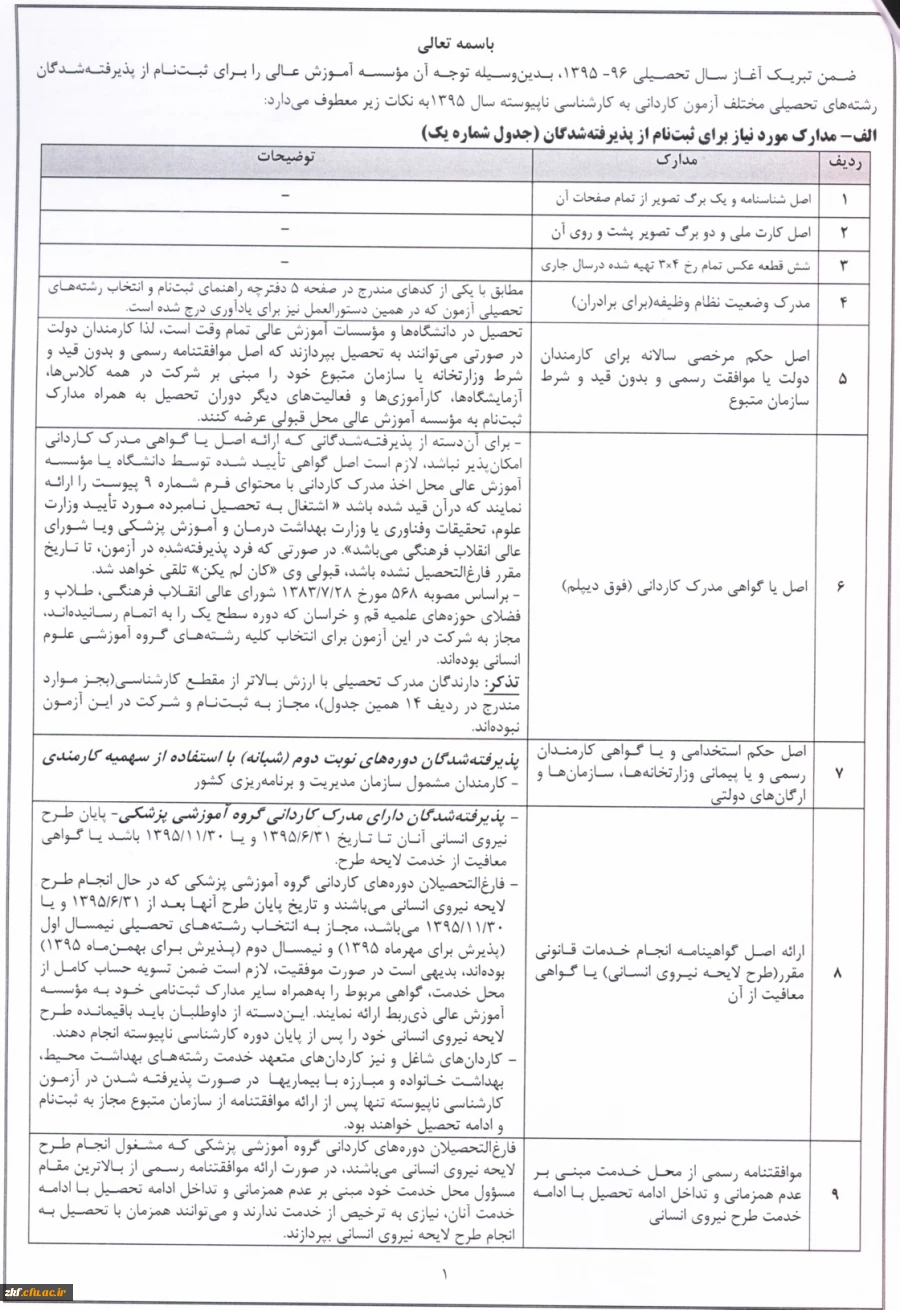 باسمه تعالی
ضمن تبریک آغاز سال تحصیلی ۹۶- ۱۳۹۵، بدین‌وسیله توجه آن مؤسسه آموزش عالی را برای ثبت‌نام از پذیرفته‌شدگان
رشته‌های تحصیلی مختلف آزمون کاردانی به کارشناسی ناپیوسته سال ۱۳۹۵به نکات زیر معطوف می‌دارد:
الف- مدارک مورد نیاز برای ثبت‌نام از پذیرفته‌شدگان (جدول شماره یک)
ردیف مدارک توضیحات
۱ اصل شناسنامه و یک برگ تصویر از تمام صفحات آن –
۲ اصل کارت ملی و دو برگ تصویر پشت و روی آن –
۳ شش قطعه عکس تمام رخ ۴×۳ تهیه شده درسال جاری –
۴ مدرک وضعیت نظام وظیفه(برای برادران)
مطابق با یکی از کدهای مندرج در صفحه ۵ دفترچه راهنمای ثبت‌نام و انتخاب رشته‌های
تحصیلی آزمون که در همین دستورالعمل نیز برای یادآوری درج شده است.
۵
اصل حکم مرخصی سالانه برای کارمندان
دولت یا موافقت رسمی و بدون قید و شرط
سازمان متبوع
تحصیل در دانشگاه‌ها و مؤسسات آموزش عالی تمام وقت است، لذا کارمندان دولت
در صورتی می‌توانند به تحصیل بپردازند که اصل موافقتنامه رسمی و بدون قید و
شرط وزارتخانه یا سازمان متبوع خود را مبنی بر شرکت در همه کلاس‌ها،
آزمایشگاه‌ها، کارآموزی‌ها و فعالیت‌های دیگر دوران تحصیل به همراه مدارک
ثبت‌نام به مؤسسه آموزش عالی محل قبولی عرضه کنند.
۶ اصل یا گواهی مدرک کاردانی (فوق دیپلم)
- برای آن‌دسته از پذیرفته‌شدگانی که ارائه اصل یا گواهی مدرک کاردانی
امکان‌پذیر نباشد، لازم است اصل گواهی تأیید شده توسط دانشگاه یا مؤسسه
آموزش عالی محل اخذ مدرک کاردانی با محتوای فرم شماره ۹ پیوست را ارائه
نمایند که درآن قید شده باشد « اشتغال به تحصیل نامبرده مورد تأیید وزارت
علوم، تحقیقات وفناوری یا وزارت بهداشت درمان و آموزش پزشکی ویا شورای
عالی انقلاب فرهنگی می‌باشد». در صورتی که فرد پذیرفته‌شده در آزمون، تا تاریخ
مقرر فارغ‌التحصیل نشده باشد، قبولی وی «کان لم یکن» تلقی خواهد شد.
- براساس مصوبه ۵۶۸ مورخ ۱۳۸۳/۷/۲۸ شورای عالی انقلاب فرهنگی، طلاب و
فضلای حوزه‌های علمیه قم و خراسان که دوره سطح یک را به اتمام رسانیده‌اند،
مجاز به شرکت در این آزمون برای انتخاب کلیه رشته‌های گروه آموزشی علوم
انسانی بوده‌اند.
تذکر: دارندگان مدرک تحصیلی با ارزش بالاتر از مقطع کارشناسی(بجز موارد
مندرج در ردیف ۱۴ همین جدول)، مجاز به ثبت‌نام و شرکت در این آزمون
نبوده‌اند.
۷
اصل حکم استخدامی و یا گواهی کارمندان
رسمی و یا پیمانی وزارتخانه‌ها، سازمان‌ها و
ارگان‌های دولتی
پذیرفته‌شدگان دوره‌های نوبت دوم (شبانه) با استفاده از سهمیه کارمندی
- کارمندان مشمول سازمان مدیریت و برنامه‌ریزی کشور
۸
ارائه اصل گواهینامه انجام خدمات قانونی
مقرر(طرح لایحه نیروی انسانی) یا گواهی
معافیت از آن
- پذیرفته‌شدگان دارای مدرک کاردانی گروه آموزشی پزشکی- پایان طرح
نیروی انسانی آنان تا تاریخ ۱۳۹۵/۶/۳۱ و یا ۱۳۹۵/۱۱/۳۰ باشد یا گواهی
معافیت از خدمت لایحه طرح.
- فارغ‌التحصیلان دوره‌های کاردانی گروه آموزشی پزشکی که در حال انجام طرح
لایحه نیروی انسانی می‌باشند و تاریخ پایان طرح آنها بعد از ۱۳۹۵/۶/۳۱ و یا
۱۳۹۵/۱۱/۳۰ می‌باشد، مجاز به انتخاب رشته‌های تحصیلی نیمسال اول
(پذیرش برای مهرماه ۱۳۹۵) و نیمسال دوم (پذیرش برای بهمن‌ماه ۱۳۹۵)
بوده‌اند، بدیهی است در صورت موفقیت، لازم است ضمن تسویه حساب کامل از
محل خدمت، گواهی مربوط را به‌همراه سایر مدارک ثبت‌نامی خود به مؤسسه
آموزش عالی ذی‌ربط ارائه نمایند. این‌دسته از داوطلبان باید باقیمانده طرح
لایحه نیروی انسانی خود را پس از پایان دوره کارشناسی ناپیوسته انجام دهند.
- کاردان‌های شاغل و نیز کاردان‌های متعهد خدمت رشته‌های بهداشت محیط،
بهداشت خانواده و مبارزه با بیماریها در صورت پذیرفته شدن در آزمون
کارشناسی ناپیوسته تنها پس از ارائه موافقتنامه از سازمان متبوع مجاز به ثبت‌نام
و ادامه تحصیل خواهند بود.
۹
موافقتنامه رسمی از محل خدمت مبنی بر
عدم همزمانی و تداخل ادامه تحصیل با ادامه
خدمت طرح نیروی انسانی
فارغ‌التحصیلان دوره‌های کاردانی گروه آموزشی پزشکی که مشغول انجام طرح
لایحه نیروی انسانی می‌باشند، در صورت ارائه موافقتنامه رسمی از بالاترین مقام
مسؤول محل خدمت خود مبنی بر عدم همزمانی و تداخل ادامه تحصیل با ادامه
خدمت آنان، نیازی به ترخیص از خدمت ندارند و می‌توانند همزمان با تحصیل به
انجام طرح لایحه نیروی انسانی بپردازند.
۱
zkf.cfu.ac.ir